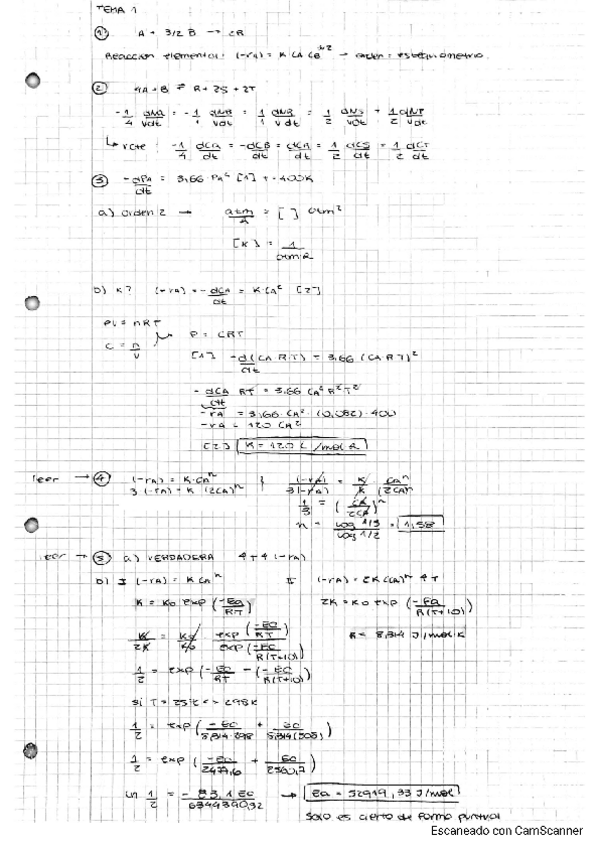 TEMA 1
① A + 3/2 B → 2R
Reaccion elemental: (-rA) = K CA CB^3/2 → orden = estequiometria
② 4A + B ⇌ R + 2S + 2T
-1/4 dNA/Vdt = -1/1 dNB/Vdt = 1/1 dNR/V dt = 1/2 dNS/Vdt = 1/2 dNT/Vdt
↳ Vcte: -1/4 dCA/dt = -dCB/dt = dCR/dt = 1/2 dCS/dt = 1/2 dCT/dt
③ -dPA/dt = 3,66 · PA² [1] T = 400K
a) orden 2 → atm/h = [ ] atm²
[K] = 1/atm·h
b) K? (-rA) = -dCA/dt = K·CA² [2]
PV = nRT
C = n/V P = CRT
[1] -d(CA RT)/dt = 3,66 (CA RT)²
-dCA/dt RT = 3,66 CA² R² T²
-rA = 3,66 · CA² · (0,082) · 400
-rA = 120 CA²
[2] K = 120 L/mol h
leer → ④ (-rA) = K·CA^n
3(-rA) = K (2CA)^n
(-rA)/3(-rA) = K/K CA^n/(2CA)^n
1/3 = (CA/2CA)^n
n = log 1/3 / log 1/2 = 1,58
leer → ⑤ a) VERDADERA
b) I (-rA) = K CA^n II (-rA) = 2K (CA)^n
K = Ko exp (-Ea/RT) 2K = Ko exp (-Ea/R(T+10))
K/2K = Ko/Ko exp(-Ea/RT)/exp(-Ea/R(T+10)) R = 8,314 J/mol·K
1/2 = exp (-Ea/RT - (-Ea/R(T+10)))
si T = 25ºC <> 298K
1/2 = exp (-Ea/8,314·298 + Ea/8,314(308))
1/2 = exp (-Ea/2477,6 + Ea/2560,7)
ln 1/2 = -83,1 Ea/6344390,32 → Ea = 52919,33 J/mol
solo es cierto de forma puntual
Escaneado con CamScanner